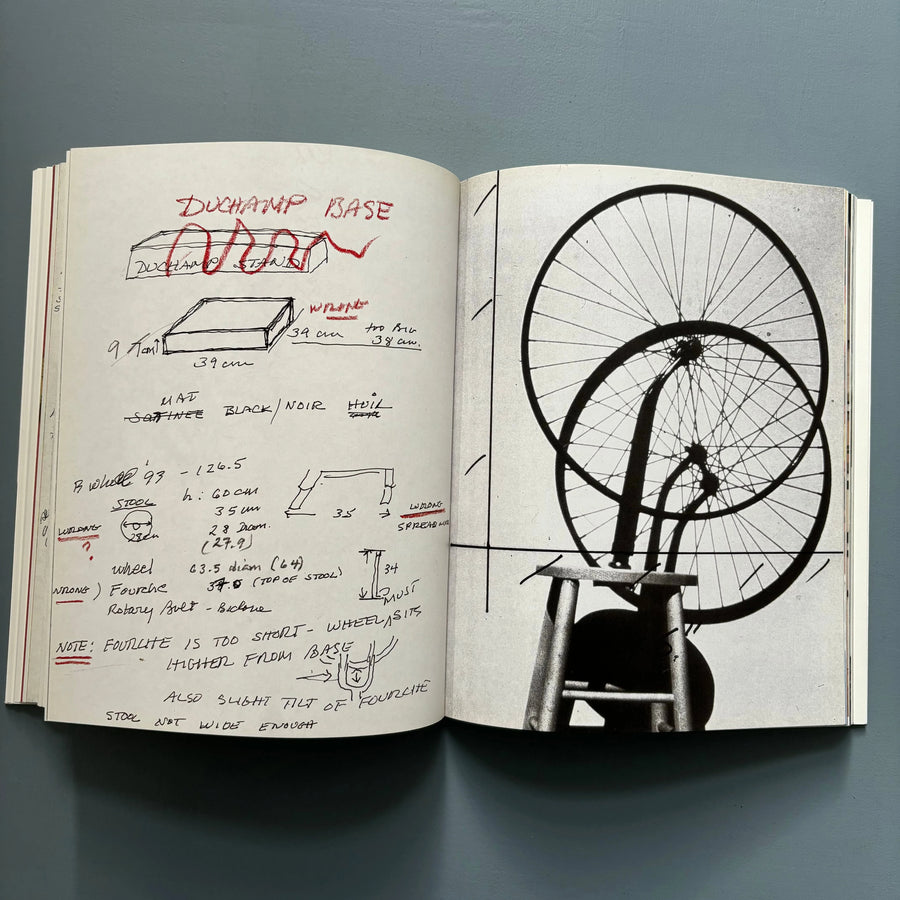 DUCHAMP BASE
DUCHAMP STAND
WRONG
9
39 cm
39 cm
too BIG
38 cm.
MAT
SATINEE BLACK/NOIR HUIL
B wheel '93 - 126.5
STOOL
28cm
WRONG
?
h: 60 cm
35 cm
28 Diam.
(27.9)
35
WRONG
SPREAD
wheel 63.5 diam (64)
WRONG ) Fourche (TOP OF STOOL)
34
MUST
Rotary Bult -
NOTE: FOURCHE IS TOO SHORT - WHEEL SITS
HIGHER FROM BASE
ALSO SLIGHT TILT OF FOURCHE
STOOL NOT WIDE ENOUGH